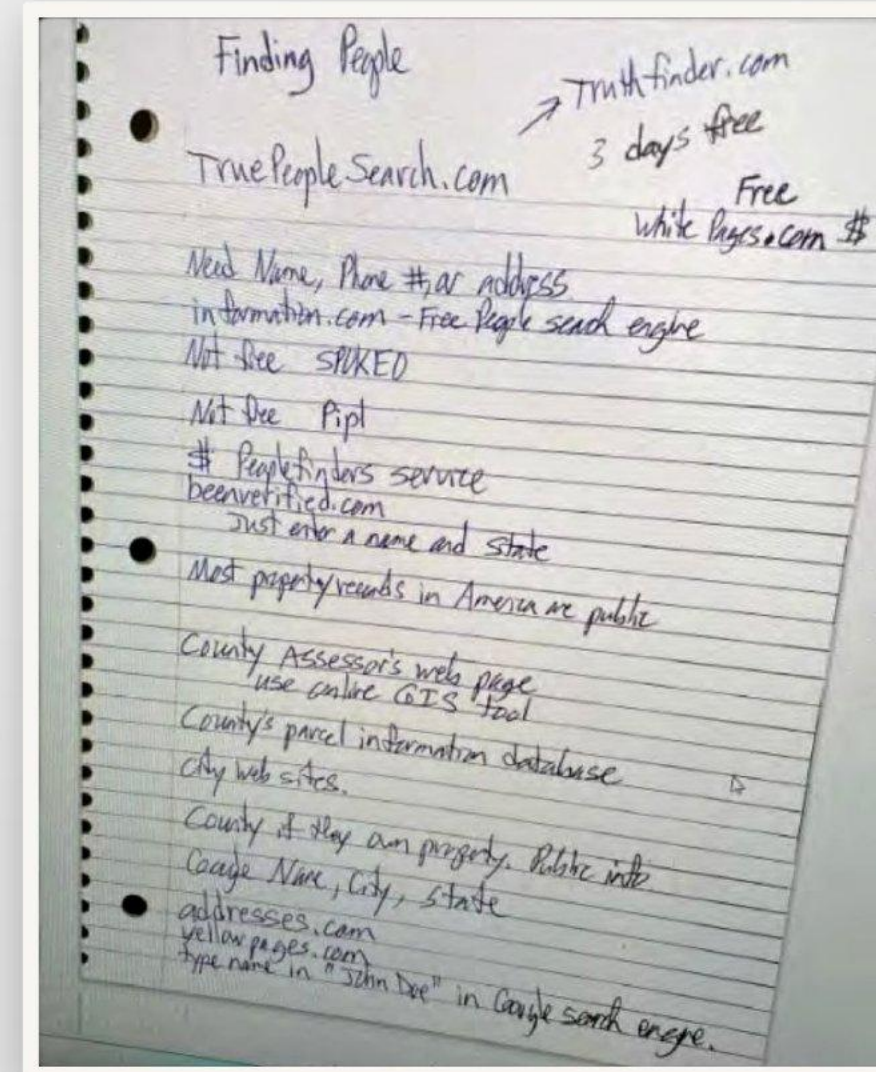 Finding People
Truthfinder.com
3 days free
TruePeopleSearch.com
Free
White Pages.com $
Need Name, Phone #, or address
information.com - Free People search engine
Not free SPOKEO
Not free Pipl
$ Peoplefinders service
beenverified.com
Just enter a name and state
Most property records in America are public
County Assessor's web page
use online GIS tool
County's parcel information database
City web sites.
County if they own property. Public info
Google Name, City, State
addresses.com
yellowpages.com
type name in "John Doe" in Google search engine.